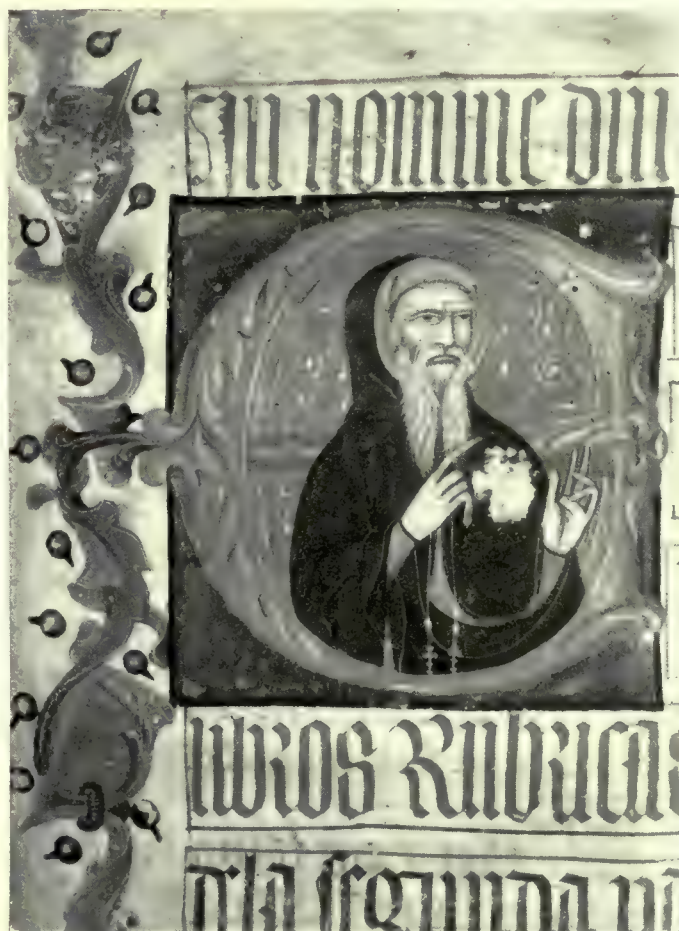 In nomine dñi
libros Rubricas
de la segunda pa